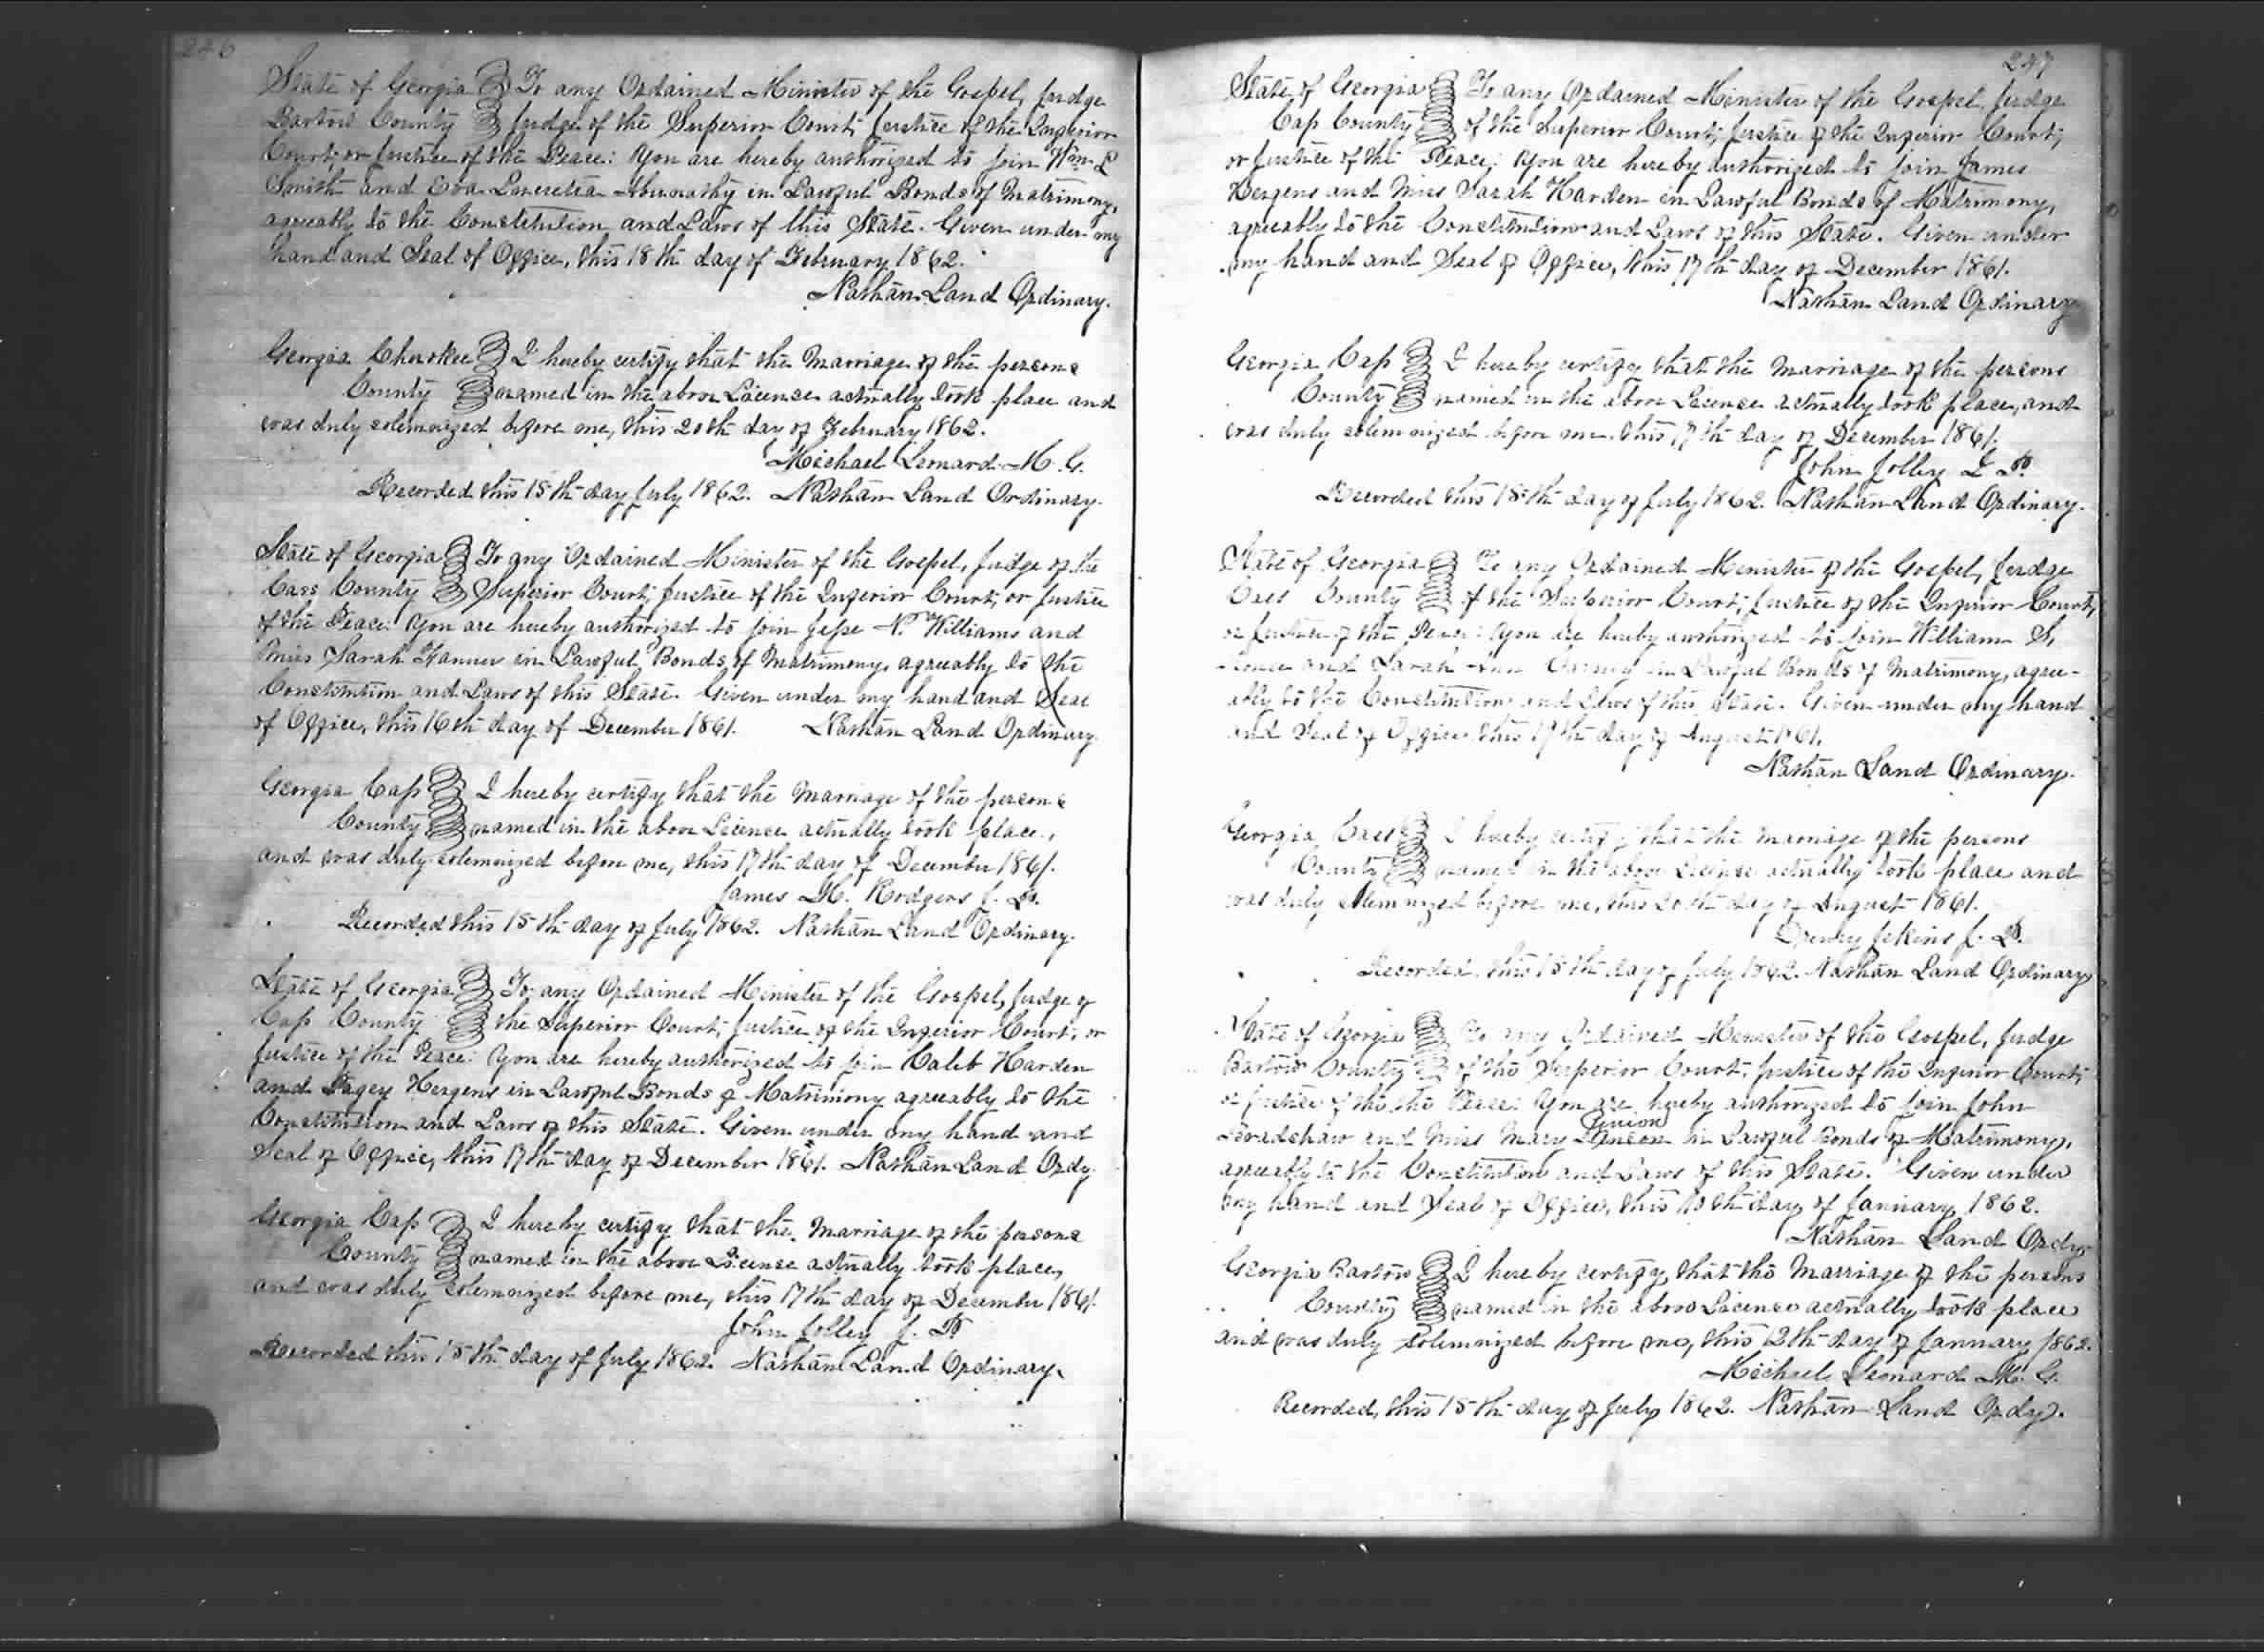 246
State of Georgia To any Ordained Minister of the Gospel, Judge
Bartow County Judge of the Superior Court, Justice of the Inferior
Court, or Justice of the Peace: You are hereby authorized to join Wm. L
Smith and Eva Lucretia in Lawful Bonds of Matrimony,
agreeably to the Constitution and Laws of this State. Given under my
hand and Seal of Office, this 18th day of February 1862.
Nathan Land Ordinary.
Georgia Cherokee I hereby certify that the Marriage of the persons
County named in the above License actually took place and
was duly solemnized before me, this 20th day of February 1862.
Michael Leonard M. G.
Recorded this 15th day July 1862. Nathan Land Ordinary.
State of Georgia To any Ordained Minister of the Gospel, Judge of the
Cass County Superior Court, Justice of the Inferior Court, or Justice
of the Peace: You are hereby authorized to join Jesse N. Williams and
Miss Sarah in Lawful Bonds of Matrimony, agreeably to the
Constitution and Laws of this State. Given under my hand and Seal
of Office, this 16th day of December 1861. Nathan Land Ordinary.
Georgia Cass I hereby certify that the Marriage of the persons
County named in the above License actually took place,
and was duly solemnized before me, this 17th day of December 1861.
James H. Rodgers J. P.
Recorded this 15th day of July 1862. Nathan Land Ordinary.
State of Georgia To any Ordained Minister of the Gospel, Judge of
Cass County the Superior Court, Justice of the Inferior Court, or
Justice of the Peace: You are hereby authorized to join Caleb Harden
and Pagey Hergens in Lawful Bonds of Matrimony agreeably to the
Constitution and Laws of this State. Given under my hand and
Seal of Office, this 17th day of December 1861. Nathan Land Ordy.
Georgia Cass I hereby certify that the Marriage of the persons
County named in the above License actually took place,
and was duly solemnized before me, this 17th day of December 1861.
John Jolley J. P.
Recorded this 15th day of July 1862. Nathan Land Ordinary.
247
State of Georgia To any Ordained Minister of the Gospel, Judge
Cass County of the Superior Court, Justice of the Inferior Court,
or Justice of the Peace: You are hereby authorized to join James
Hergens and Miss Sarah Harden in Lawful Bonds of Matrimony,
agreeably to the Constitution and Laws of this State. Given under
my hand and Seal of Office, this 17th day of December 1861.
Nathan Land Ordinary
Georgia Cass I hereby certify that the Marriage of the persons
County named in the above License actually took place, and
was duly solemnized before me, this 17th day of December 1861.
John Jolley J. P.
Recorded this 15th day of July 1862. Nathan Land Ordinary.
State of Georgia To any Ordained Minister of the Gospel, Judge
Cass County of the Superior Court, Justice of the Inferior Court,
or Justice of the Peace: You are hereby authorized to join William S.
and Sarah in Lawful Bonds of Matrimony, agree-
ably to the Constitution and Laws of this State. Given under my hand
and Seal of Office this 17th day of August 1861.
Nathan Land Ordinary.
Georgia Cass I hereby certify that the Marriage of the persons
County named in the above License actually took place and
was duly solemnized before me, this 20th day of August 1861.
Drewry Jekins J. P.
Recorded, this 15th day of July 1862. Nathan Land Ordinary
State of Georgia To any Ordained Minister of the Gospel, Judge
Bartow County of the Superior Court, Justice of the Inferior Court,
or Justice of the the Peace: You are hereby authorized to join John
Bradshaw and Miss Mary in Lawful Bonds of Matrimony,
agreeably to the Constitution and Laws of this State. Given under
my hand and Seal of Office, this 10th day of January, 1862.
Nathan Land Ordy.
Georgia Bartow I hereby certify, that the Marriage of the persons
County named in the above License actually took place
and was duly solemnized before me, this 12th day of January 1862.
Michael Leonard M. G.
Recorded, this 15th day of July 1862. Nathan Land Ordy.